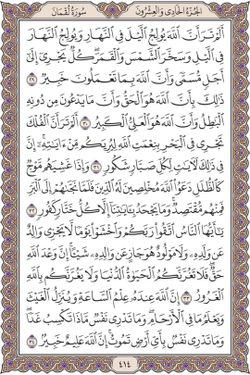 الجُزْءُ الحَادِي وَالعِشْرُونَ
سُورَةُ لُقْمَان
أَلَمْ تَرَ أَنَّ ٱللَّهَ يُولِجُ ٱلَّيْلَ فِى ٱلنَّهَارِ وَيُولِجُ ٱلنَّهَارَ
فِى ٱلَّيْلِ وَسَخَّرَ ٱلشَّمْسَ وَٱلْقَمَرَۖ كُلٌّ يَجْرِىٓ إِلَىٰٓ
أَجَلٍ مُّسَمًّى وَأَنَّ ٱللَّهَ بِمَا تَعْمَلُونَ خَبِيرٌ ٢٩
ذَٰلِكَ بِأَنَّ ٱللَّهَ هُوَ ٱلْحَقُّ وَأَنَّ مَا يَدْعُونَ مِن دُونِهِ
ٱلْبَٰطِلُ وَأَنَّ ٱللَّهَ هُوَ ٱلْعَلِىُّ ٱلْكَبِيرُ ٣٠ أَلَمْ تَرَ أَنَّ ٱلْفُلْكَ
تَجْرِى فِى ٱلْبَحْرِ بِنِعْمَتِ ٱللَّهِ لِيُرِيَكُم مِّنْ ءَايَٰتِهِۦٓۚ إِنَّ
فِى ذَٰلِكَ لَءَايَٰتٍ لِّكُلِّ صَبَّارٍ شَكُورٍ ٣١ وَإِذَا غَشِيَهُم مَّوْجٌ
كَٱلظُّلَلِ دَعَوُا۟ ٱللَّهَ مُخْلِصِينَ لَهُ ٱلدِّينَ فَلَمَّا نَجَّىٰهُمْ إِلَى ٱلْبَرِّ
فَمِنْهُم مُّقْتَصِدٌۚ وَمَا يَجْحَدُ بِـَٔايَٰتِنَآ إِلَّا كُلُّ خَتَّارٍ كَفُورٍ ٣٢
يَٰٓأَيُّهَا ٱلنَّاسُ ٱتَّقُوا۟ رَبَّكُمْ وَٱخْشَوْا۟ يَوْمًا لَّا يَجْزِى وَالِدٌ
عَن وَلَدِهِۦ وَلَا مَوْلُودٌ هُوَ جَازٍ عَن وَالِدِهِۦ شَيْـًٔاۚ إِنَّ وَعْدَ ٱللَّهِ
حَقٌّۖ فَلَا تَغُرَّنَّكُمُ ٱلْحَيَوٰةُ ٱلدُّنْيَا وَلَا يَغُرَّنَّكُم بِٱللَّهِ
ٱلْغَرُورُ ٣٣ إِنَّ ٱللَّهَ عِندَهُۥ عِلْمُ ٱلسَّاعَةِ وَيُنَزِّلُ ٱلْغَيْثَ
وَيَعْلَمُ مَا فِى ٱلْأَرْحَامِۖ وَمَا تَدْرِى نَفْسٌ مَّاذَا تَكْسِبُ غَدًاۖ
وَمَا تَدْرِى نَفْسٌۢ بِأَىِّ أَرْضٍ تَمُوتُۚ إِنَّ ٱللَّهَ عَلِيمٌ خَبِيرٌۢ ٣٤
٤١٤